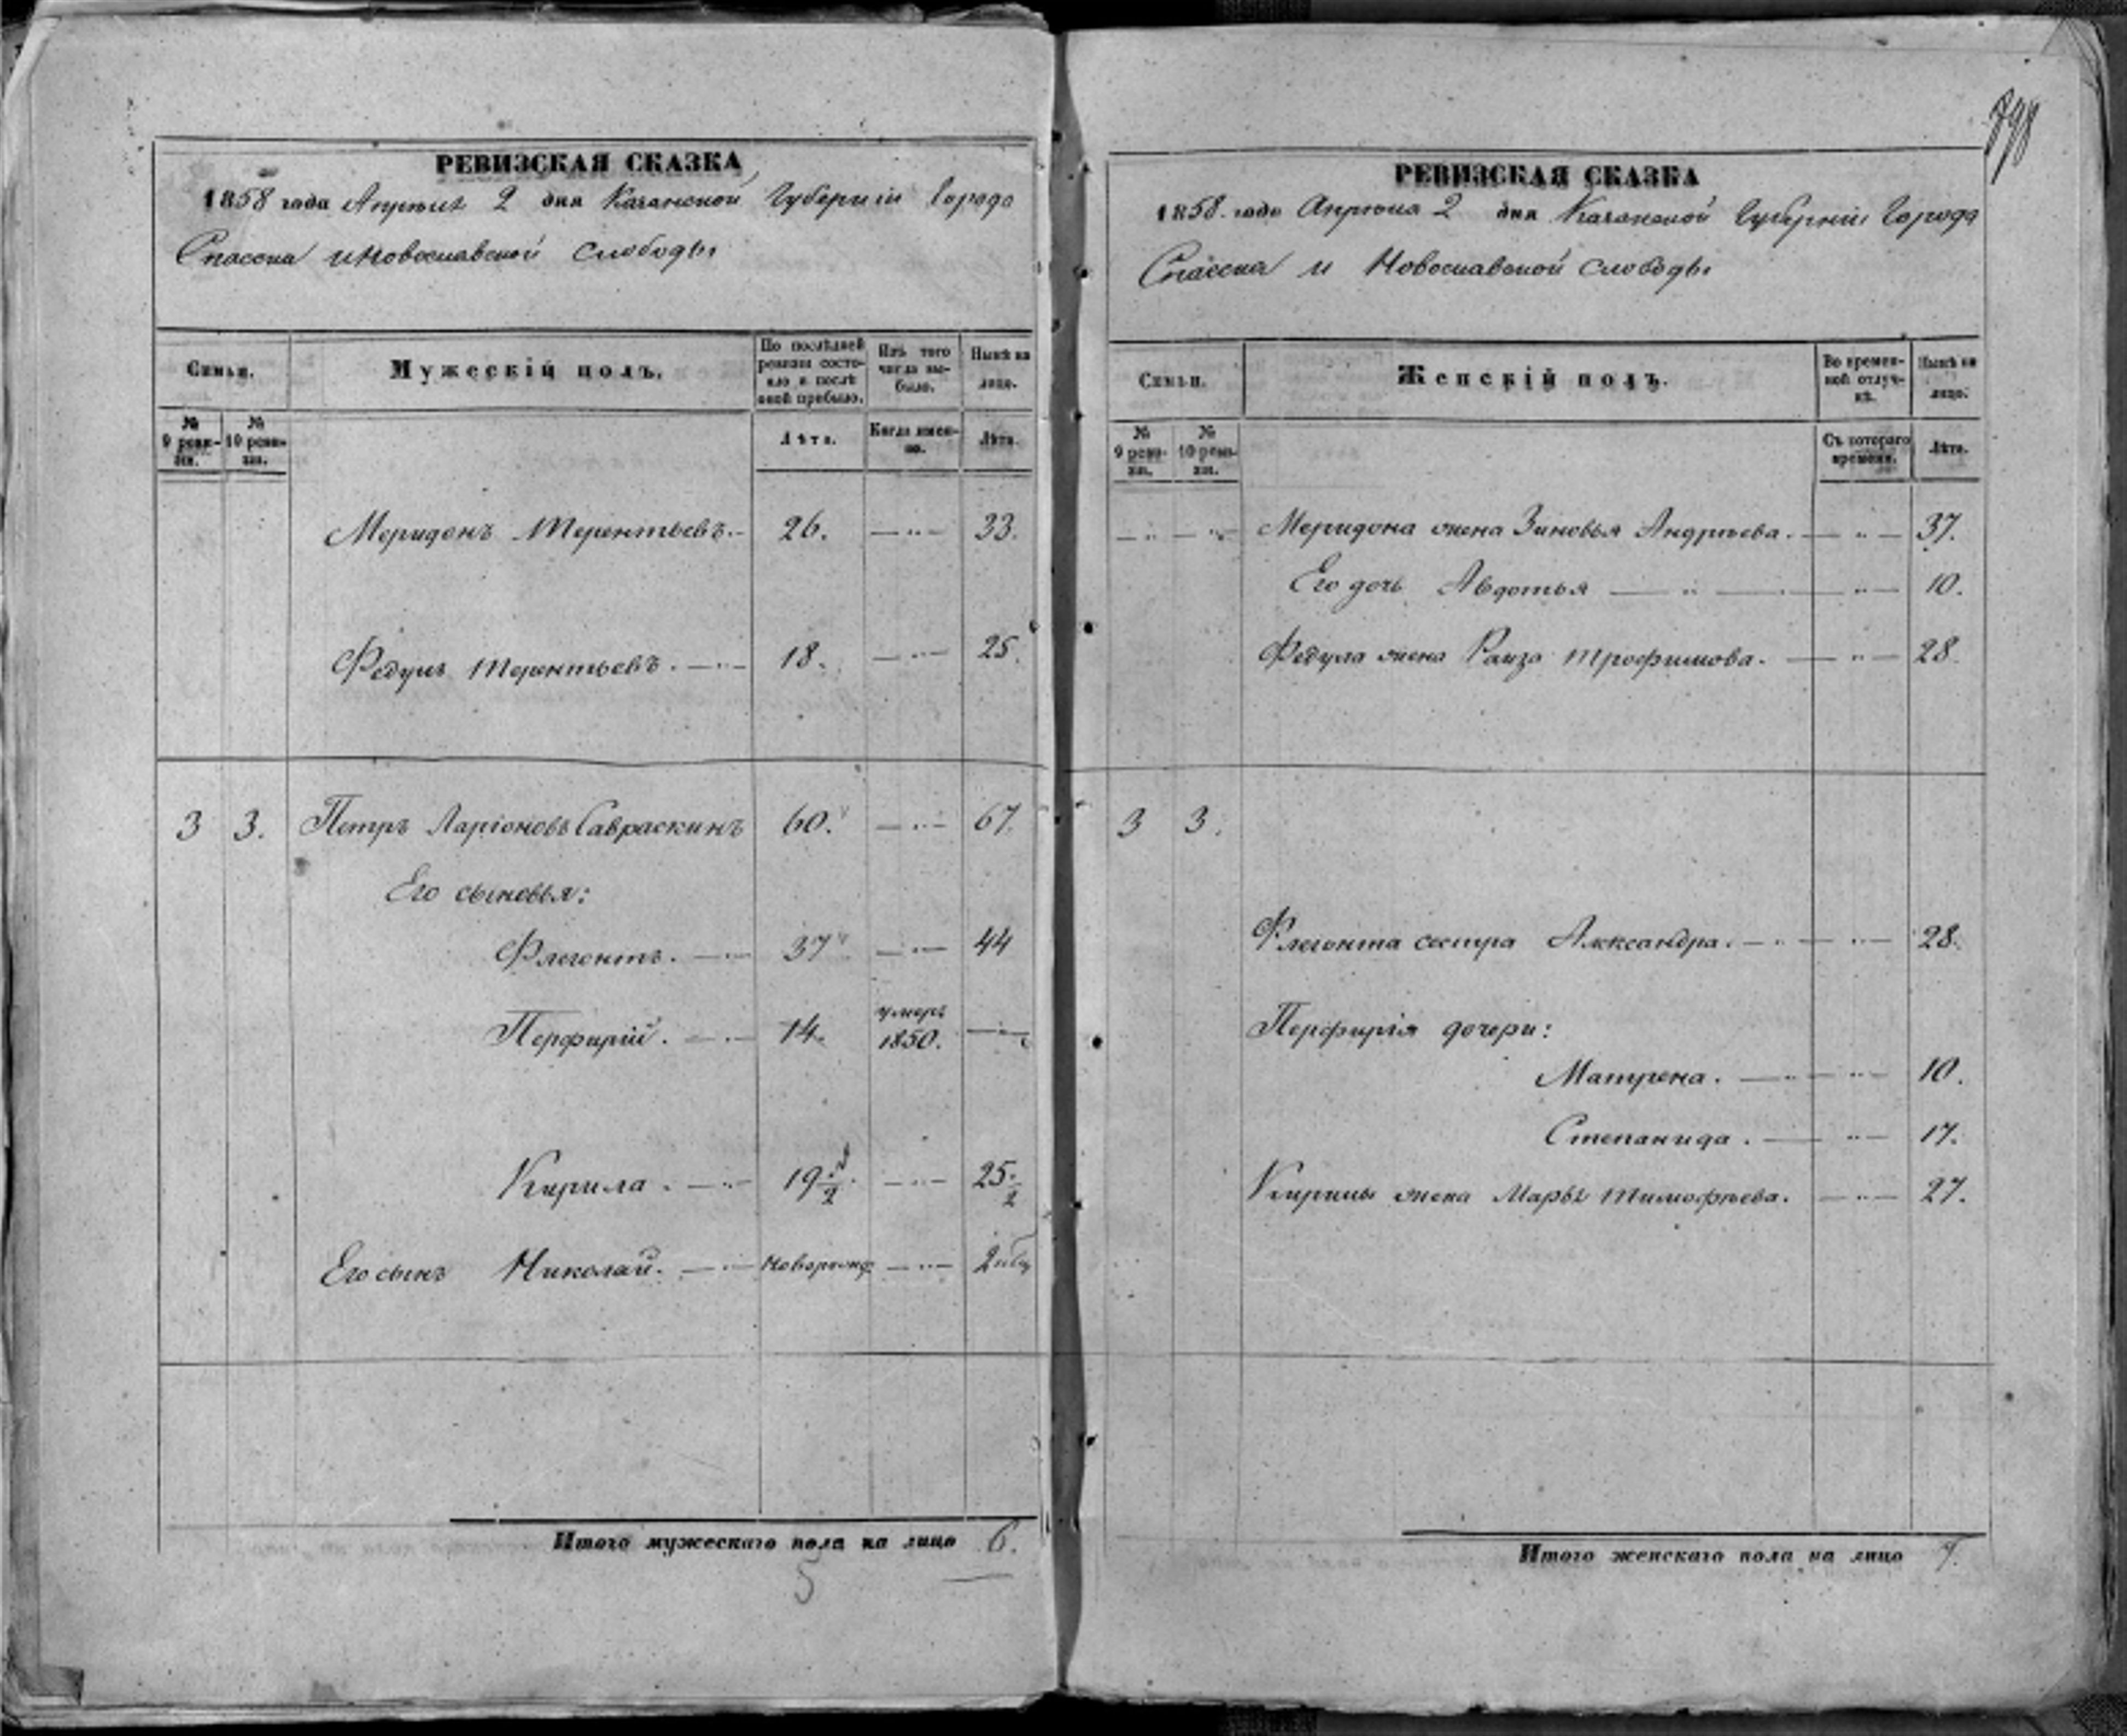 798
РЕВИЗСКАЯ СКАЗКА
1858 года Апрѣля 2 дня Казанской Губерніи Города
Спасска и Новославской слободы
Мужескій полъ.
По послѣдней ревизіи состояло и послѣ оной прибыло.
Изъ того числа выбыло.
Нынѣ на лицо.
№ 9 ревизіи.
№ 10 ревизіи.
Лѣта.
Когда именно.
Лѣта.
Меридонъ Терентьевъ. 26. 33.
Федулъ Терентьевъ. 18. 25.
3 3. Петръ Ларіоновъ Савраскинъ 60. 67.
Его сыновья:
Флегонтъ. 37 44
Перфирій. 14. умеръ 1850.
Кирила. 19 1/2 25 1/2
Его сынъ Николай. новорожд.
Итого мужескаго пола на лицо 6.
5
РЕВИЗСКАЯ СКАЗКА
1858 года Апрѣля 2 дня Казанской Губерніи Города
Спасска и Новославской слободы
Женскій полъ.
Во временной отлучкѣ.
Нынѣ на лицо.
№ 9 ревизіи.
№ 10 ревизіи.
Съ котораго времени.
Лѣта.
Меридона жена Зиновья Андрѣева. 37.
Его дочь Авдотья 10.
Федула жена Раиза Трофимова. 28.
3 3.
Флегонта сестра Александра. 28.
Перфирія дочери:
Матрена. 10.
Степанида. 17.
Кирилы жена Марья Тимофѣева. 27.
Итого женскаго пола на лицо 7.